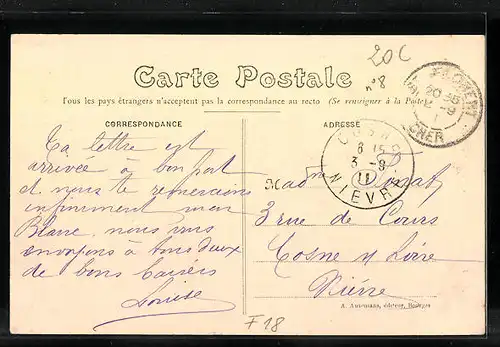 20c
n° 8
Carte Postale
Tous les pays étrangers n'acceptent pas la correspondance au recto (Se renseigner à la Poste)
CORRESPONDANCE
ADRESSE
Ta lettre est
arrivée à bon port
et nous te remercions
infiniment mon
nous vous
envoyons à tous deux
de bons baisers
Louise
COSNE
6 15
3 -9
11
NIEVRE
CHER
20
-9
Madme
3 rue de Cours
Cosne s/ Loire
Nièvre
A. Auxenfans, éditeur, Bourges
F18